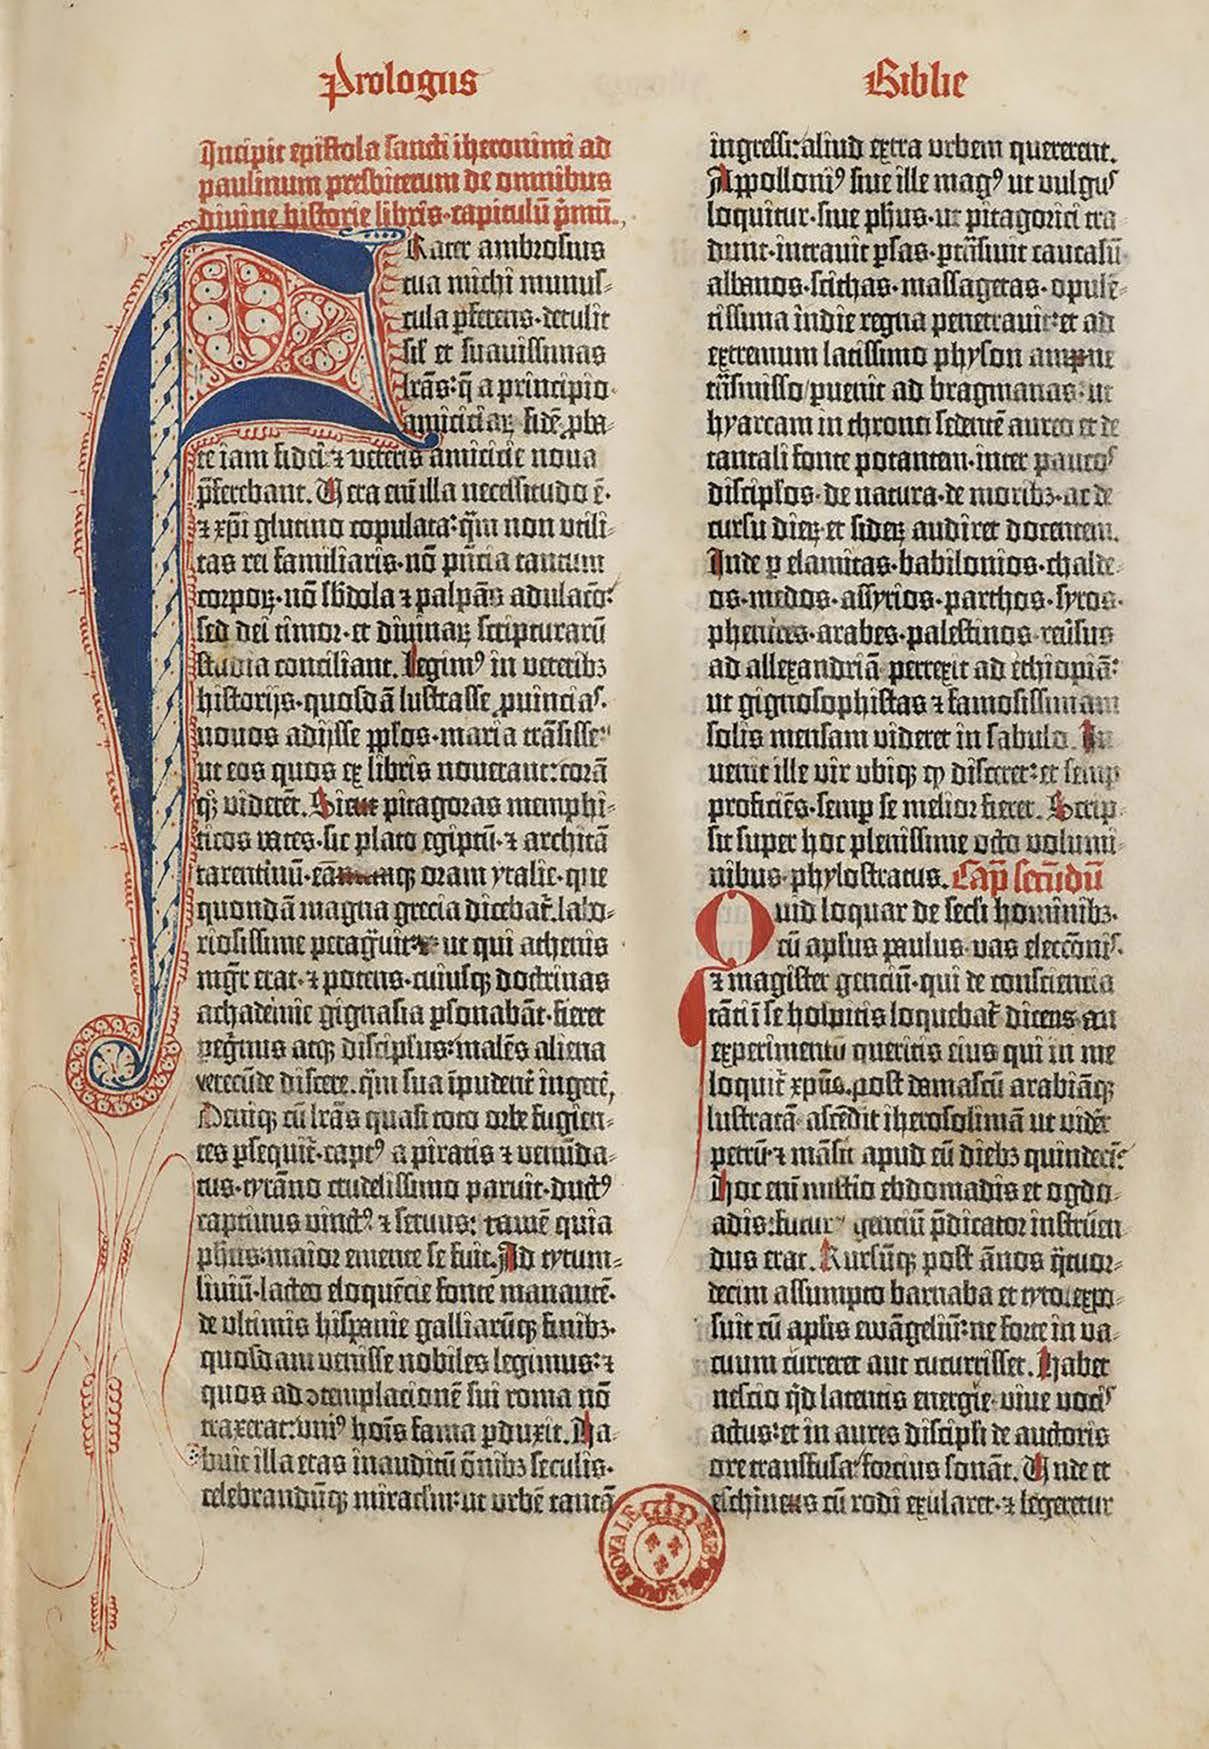 Prologus
Biblie
Incipit epistola sancti iheronimi ad
paulinum presbiterum de omnibus
divine historie libris·capitulū p̄mū.
Frater ambrosius
tua michi munus-
cula ꝑferens·detulit
sil̄ et suavissimas
lr̄as:q̄ a principio
amicitiaꝝ fidē ꝓba-
te iam fidei ⁊ veteris amicicie noua
p̄ferebant. Uera eni illa necessitudo ē·
⁊ xp̄i glutino copulata:q̄m non utili-
tas rei familiaris·nō pn̄cia tantum
corpoꝝ·nō sb̄dola ⁊ palpās adulacō:
sed dei timor·et diuinaꝝ scripturarū
studia conciliant. Legimꝰ in veteribꝫ
historijs·quosdā lustrasse ꝓuincias·
nouos adijsse ꝓpl̄os·maria trāsisse·
ut eos quos ex libris nouerant:corā
qꝫ viderēt. Sicut pitagoras memphi-
ticos vates·sic plato egiptū·⁊ architā
tarentinū·eā qꝫ oram ytalie·que
quondā magna grecia dicebat̄·labo-
riosissime peragᷓuit· ut qui athenis
mḡr erat·⁊ potens·cuiusqꝫ doctrinas
achademie gignasia ꝑsonabāt·fieret
ꝑegrinus atqꝫ discipl̄us:malēs aliena
verecūde discere·q̄m sua īpudent̄ ingerē,
Deniqꝫ cū lr̄as quasi toto orbe fugien-
tes ꝑsequit̄·captꝰ a piratis ⁊ venūda-
tus·tyrāno crudelissimo paruit·ductꝰ
captiuus vinctꝰ ⁊ seruus: tamē quia
ph̄us·maior emente se fuit. Ad tytum-
liuiū·lacteo eloquēcie fonte manantē·
de ultimis hispanie galliarūqꝫ finibꝫ·
quosdam venisse nobiles legimus:⁊
quos ad ↄtemplacionē sui roma nō
traxerat:uniꝰ hoīs fama ꝑduxit. Ha-
buit illa etas inauditū ōnibꝫ seculis·
celebrandūqꝫ miraclm̄:ut urbē tantā
ingressi:aliud extra urbem quererent.
Appolloniꝰ siue ille magꝰ ut vulgus
loquitur·siue ph̄us·ut pitagorici tra
dunt·intrauit ꝑsas·ꝑtrāsiuit caucasū·
albanos·scithas·massagetas·opulē-
tissima indie regna penetrauit:et ad
extremum latissimo physon ampne
trāsmisso ꝑuenit ad bragmanas·ut
hyarcam in throno sedentē aureo et de
tantali fonte potantem·inter paucos
discipl̄os·de natura·de moribꝫ·ac de
cursu dieꝝ et sideꝝ audiret docentem.
Inde ꝑ elamitas·babilonios·chalde-
os·medos·assyrios·parthos·syros·
phenices·arabes·palestinos·reūsus
ad allexandriā·perrexit ad ethiopiā:
ut gignosophistas ⁊ famosissimam
solis mensam videret in sabulo. In
uenit ille vir ubiqꝫ qd̄ disceret:et semꝑ
proficiēs·semꝑ se melior fieret. Scrip-
sit super hoc plenissime octo volumi-
nibus phylostratus. Cap̄ secūdū
Quid loquar de secl̄i hominibꝫ·
cū apl̄us paulus·vas eleccōnis·
⁊ magister genciū·qui de consciencia
tāti ī se hospitis loquebat̄ dicens·an
experimentū queritis eius qui in me
loquit̄ xp̄us.post damascū arabiāqꝫ
lustratā·ascēdit iherosolimā ut vidēt
petrū·⁊ māsit apud eū diebꝫ quindecī:
Hoc eni mistio ebdomadis et ogdo-
adis:futur genciū p̄dicator instruen
dus erat. Rursūqꝫ post ānos q̄tuor-
decim assumpto barnaba et tyto:expo-
suit cū apl̄is ewāgeliū:ne forte in va-
cuum curreret aut cucurrisset. Habet
nescio qd̄ latentis energie·viue vocis
actus:et in aures discipli de auctoris
ore transfusa·forcius sonāt. Unde et
eschineus cū rodi exularet·⁊ legeretur